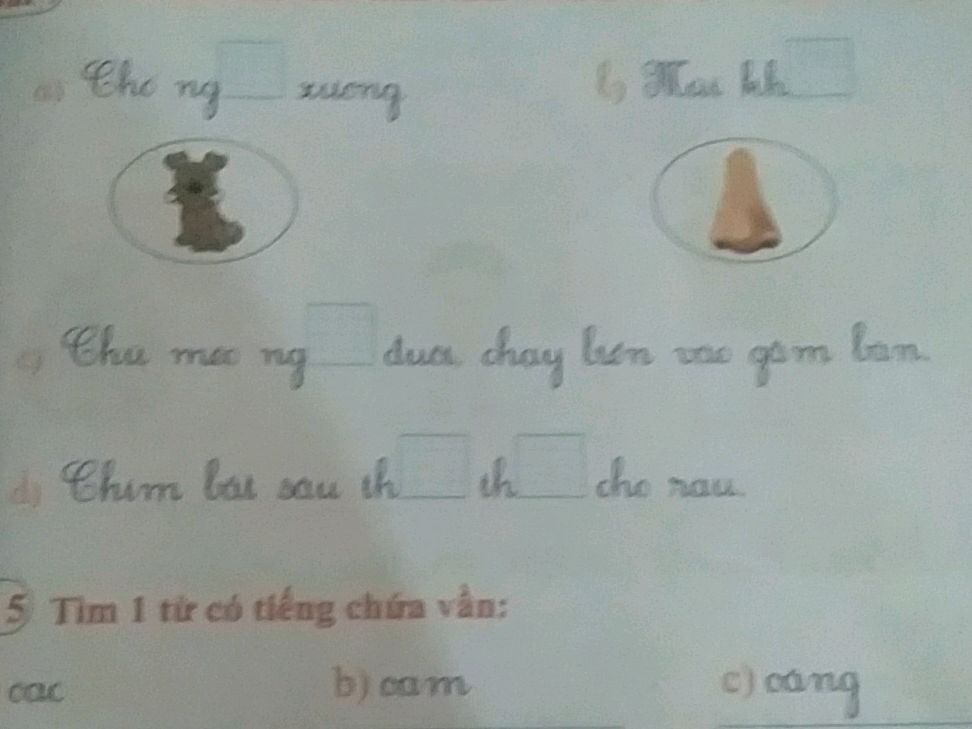 a) Chó ng xương b) Mũi kh
c) Chú mèo ng đuôi chạy biến vào gầm bàn.
d) Chim sâu th th cho rau.
5 Tìm 1 từ có tiếng chứa vần:
b) oam c)